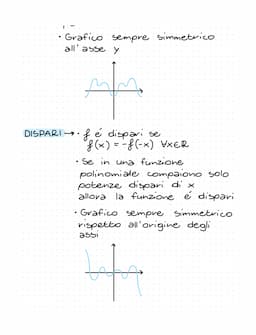 • Grafico sempre simmetrico
all'asse y
DISPARI → • f é dispari se
f(x) = -f(-x) ∀x∈R
• Se in una funzione
polinomiale compaiono solo
potenze dispari di x
allora la funzione é dispari
• Grafico sempre simmetrico
rispetto all'origine degli
assi